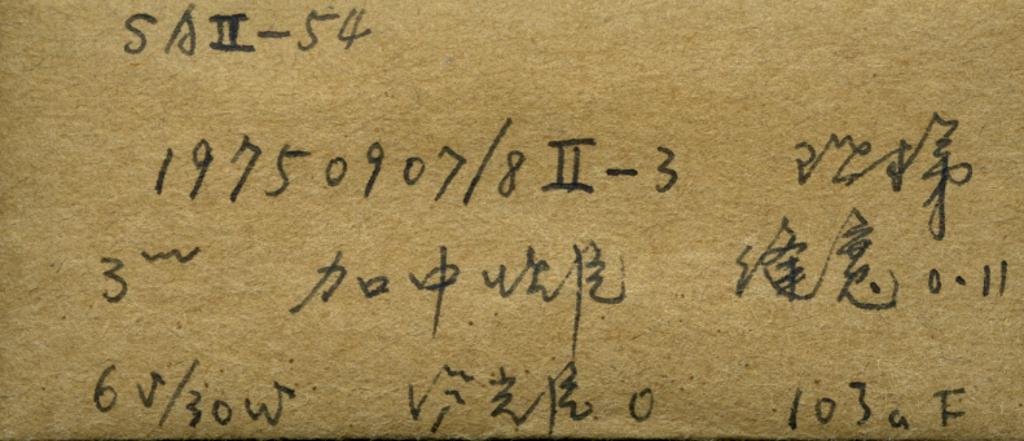 SA II-54
19750907/8 II-3 阶梯
3ᵐ 加中性片 缝宽 0.11
6V/30W 滤光片 0 103aF